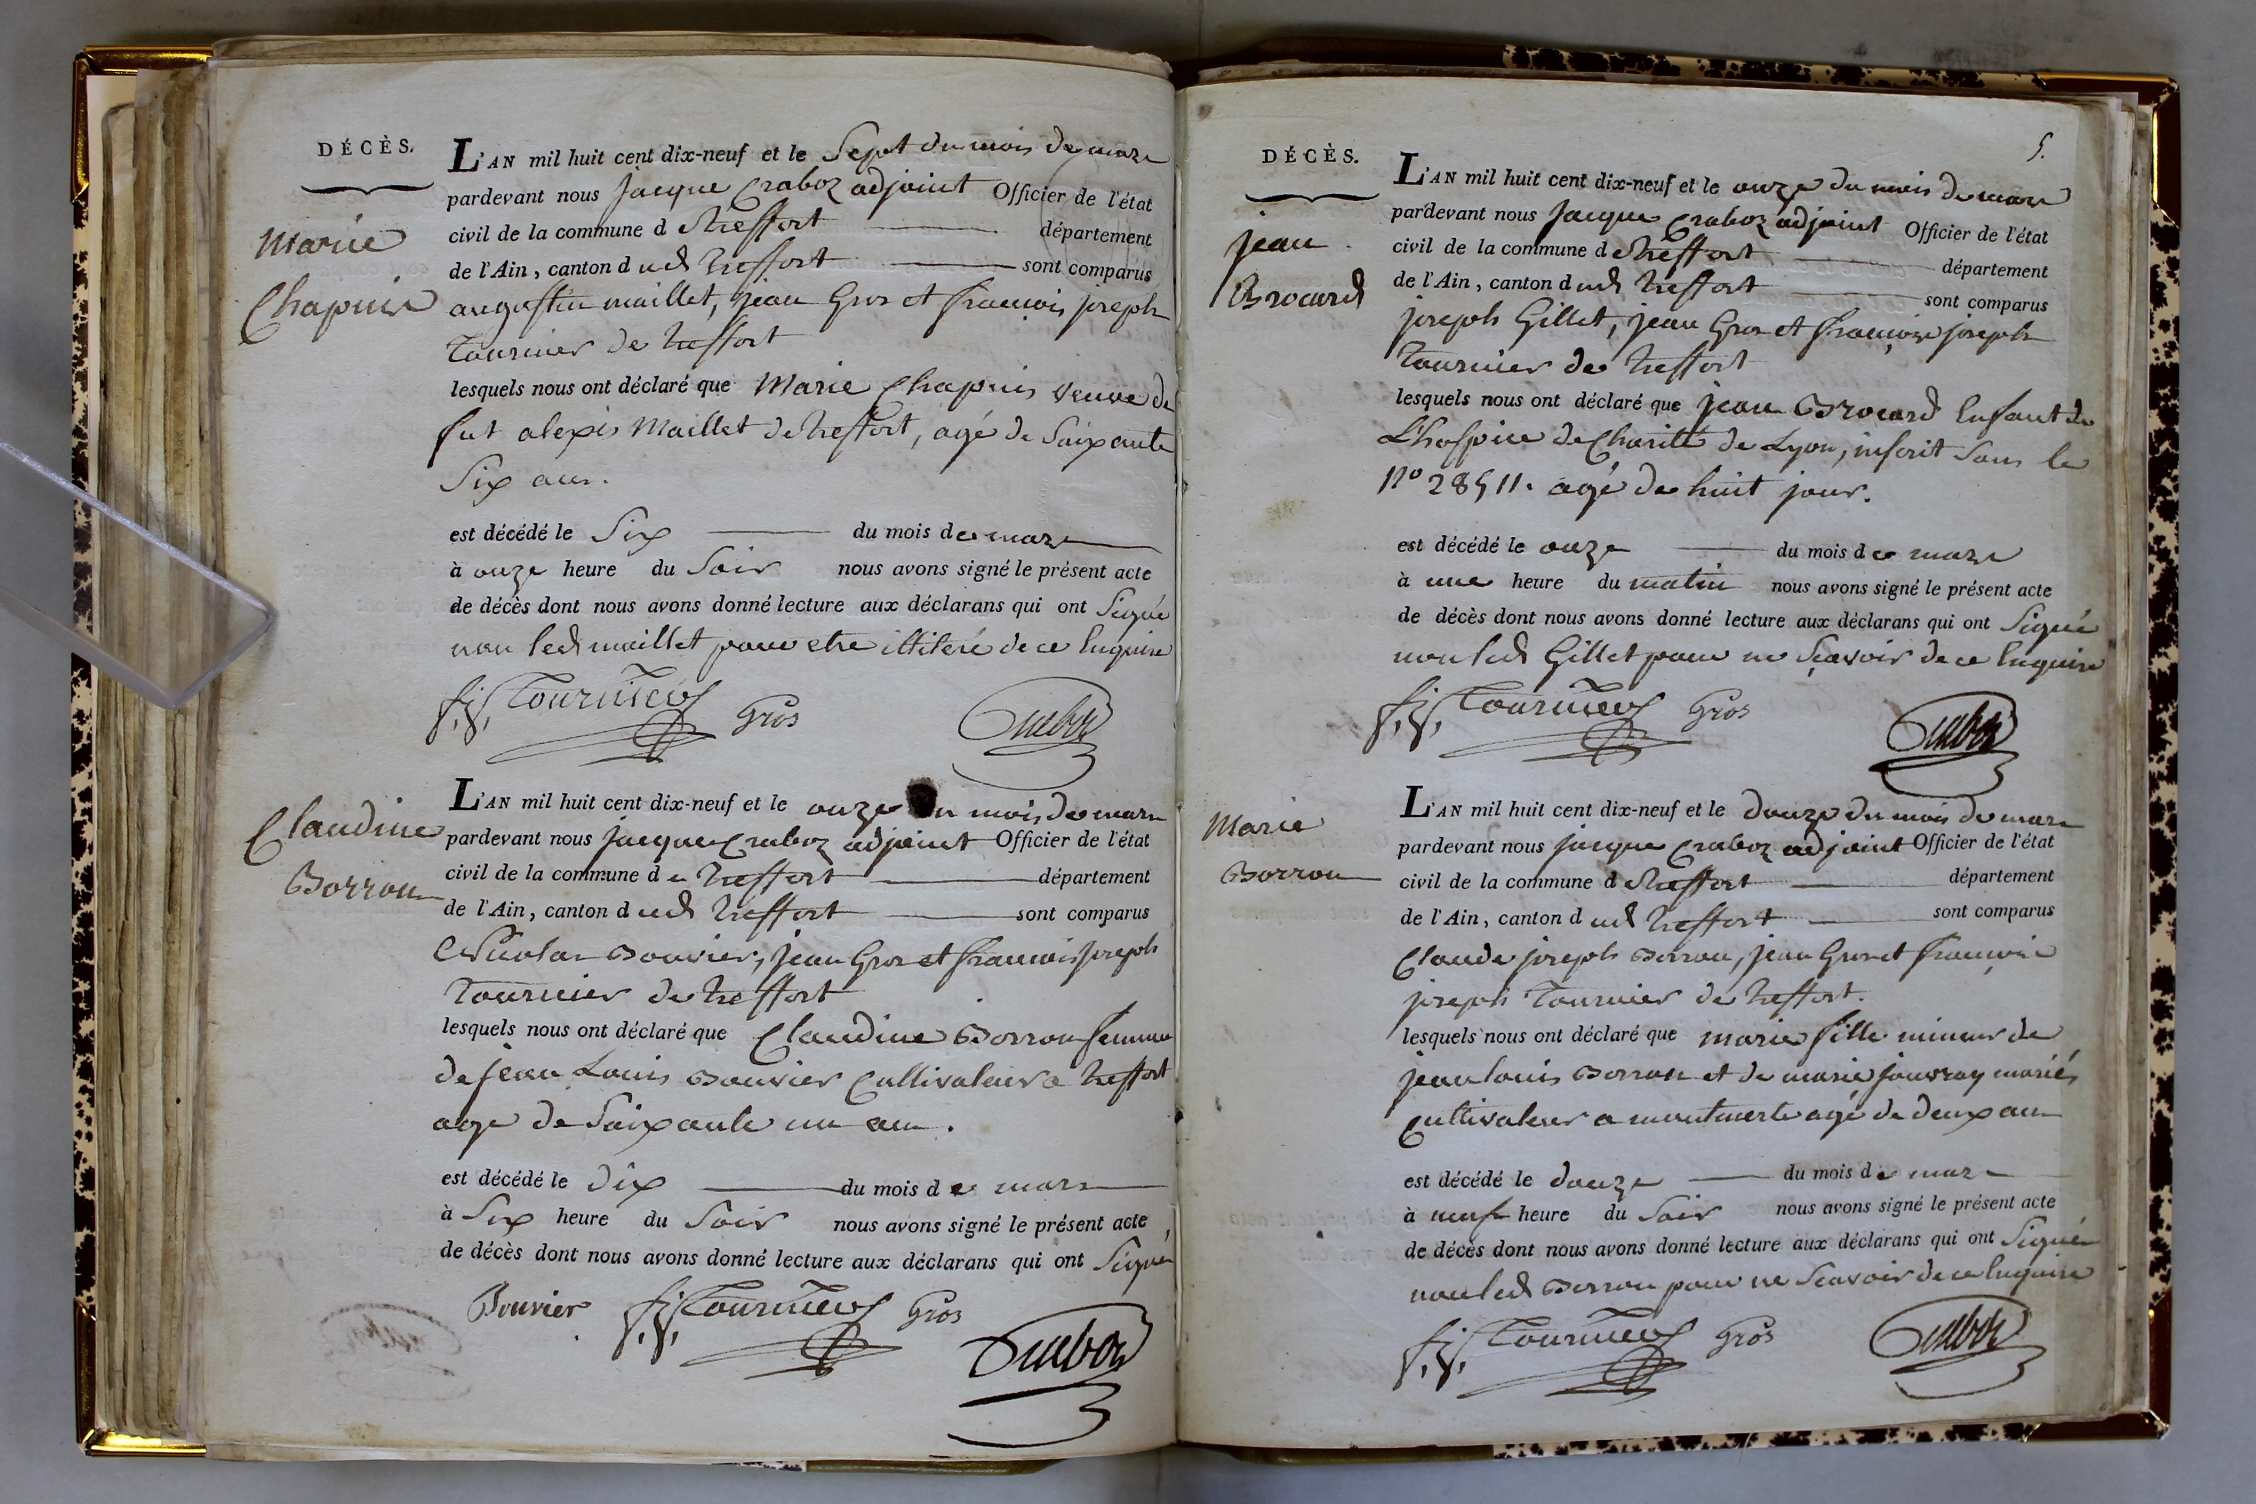 DÉCÈS.
Marie
Chapuis
L'AN mil huit cent dix-neuf et le Sept du mois de mars
pardevant nous jacque Craboz adjoint Officier de l'état
civil de la commune de treffort département
de l'Ain, canton dud treffort sont comparus
augustin maillet, jean Gros et francois joseph
Tournier de treffort
lesquels nous ont déclaré que Marie Chapuis veuve de
fut alexis Maillet de treffort, agé de Soixante
Six ans.
est décédé le Six du mois de mars
à onze heure du Soir nous avons signé le présent acte
de décès dont nous avons donné lecture aux déclarans qui ont Signé
non led maillet pour etre illiteré de ce Enquire
f. j. Tournier Gros Craboz
Claudine
Borron
L'AN mil huit cent dix-neuf et le onze du mois de mars
pardevant nous jacque Craboz adjoint Officier de l'état
civil de la commune de treffort département
de l'Ain, canton dud treffort sont comparus
Nicolas Bouvier, jean Gros et francois joseph
Tournier de treffort
lesquels nous ont déclaré que Claudine Borron femme
de jean Louis Bouvier Cultivateur a treffort
age de Soixante un an.
est décédé le dix du mois de mars
à Six heure du Soir nous avons signé le présent acte
de décès dont nous avons donné lecture aux déclarans qui ont Signé
Bouvier f. j. Tournier Gros
Craboz
5.
DÉCÈS.
jean
Brocard
L'AN mil huit cent dix-neuf et le onze du mois de mars
pardevant nous jacque Craboz adjoint Officier de l'état
civil de la commune de treffort département
de l'Ain, canton dud treffort sont comparus
joseph Gillet, jean Gros et françois joseph
Tournier de treffort
lesquels nous ont déclaré que jean Brocard Enfant de
L'hospice de Charité de Lyon, inscrit sous le
N° 28511. agé de huit jour.
est décédé le onze du mois de mars
à une heure du matin nous avons signé le présent acte
de décès dont nous avons donné lecture aux déclarans qui ont Signé
non led Gillet pour ne Sçavoir de ce Enquire
f. j. Tournier Gros Craboz
Marie
Borron
L'AN mil huit cent dix-neuf et le douze du mois de mars
pardevant nous jacque Craboz adjoint Officier de l'état
civil de la commune de treffort département
de l'Ain, canton dud treffort sont comparus
Claude joseph Borron, jean Gros et françois
joseph Tournier de treffort.
lesquels nous ont déclaré que marie fille mineur de
jean louis Borron et de marie jouvray mariés
Cultivateur a montmerle agé de deux ans
est décédé le douze du mois de mars
à neuf heure du Soir nous avons signé le présent acte
de décès dont nous avons donné lecture aux déclarans qui ont Signés
non led Borron pour ne Scavoir de ce Enquire
f. j. Tournier Gros Craboz